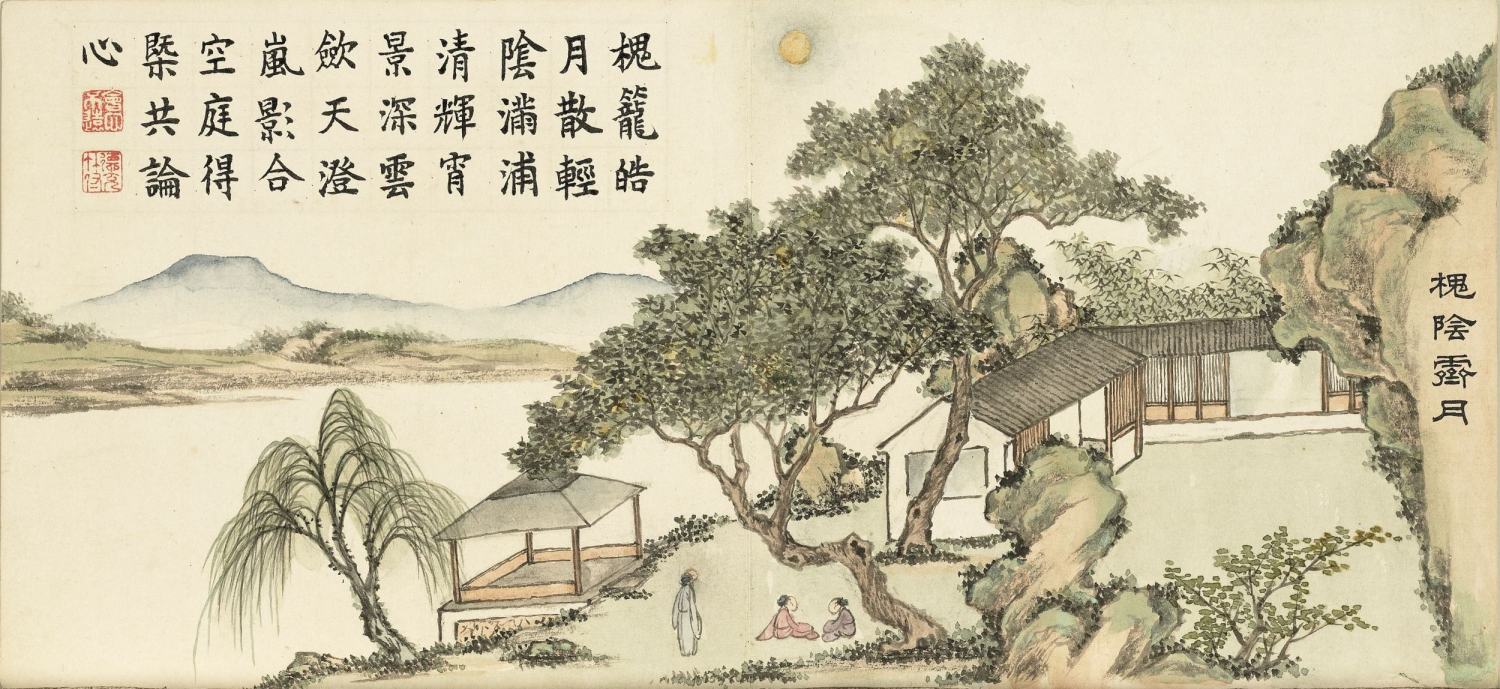 槐陰霽月
槐籠皓
月散輕
陰滿浦
清輝宵
景深雲
歛天澄
嵐影合
空庭得
槩共論
心